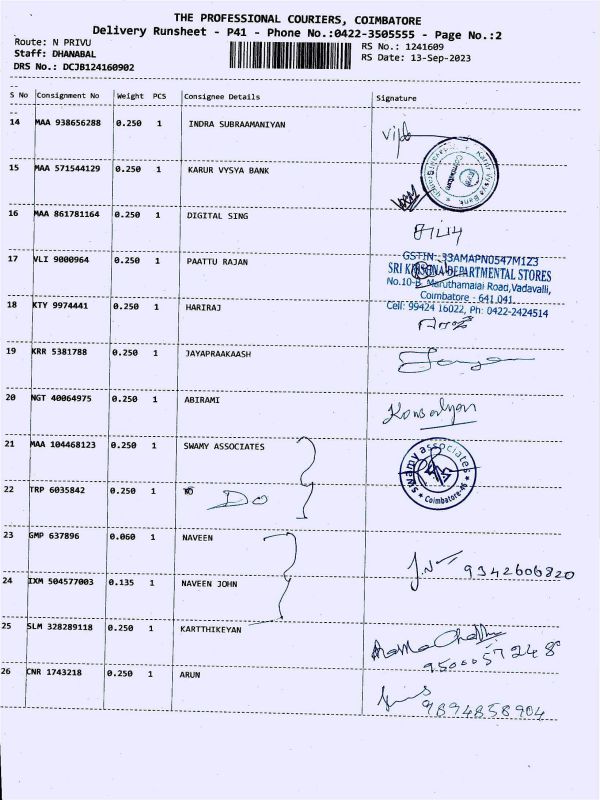 THE PROFESSIONAL COURIERS, COIMBATORE
Delivery Runsheet - P41 - Phone No.:0422-3505555 - Page No.:2
Route: N PRIVU
RS No.: 1241609
Staff: DHANABAL
RS Date: 13-Sep-2023
DRS No.: DCJB124160902
S No Consignment No Weight PCS Consignee Details Signature
14 MAA 938656288 0.250 1 INDRA SUBRAAMANIYAN
15 MAA 571544129 0.250 1 KARUR VYSYA BANK
Karur Vysya Bank
Coimbatore
16 MAA 861781164 0.250 1 DIGITAL SING
17 VLI 9000964 0.250 1 PAATTU RAJAN
GSTIN: 33AMAPN0547M1Z3
SRI KRISHNA DEPARTMENTAL STORES
No.10-B, Maruthamalai Road,Vadavalli,
Coimbatore - 641 041.
Cell: 99424 16022, Ph: 0422-2424514
18 KTY 9974441 0.250 1 HARIRAJ
19 KRR 5381788 0.250 1 JAYAPRAAKAASH
20 NGT 40064975 0.250 1 ABIRAMI
21 MAA 104468123 0.250 1 SWAMY ASSOCIATES
swamy associates
Coimbatore-46
22 TRP 6035842 0.250 1 Do
23 GMP 637896 0.060 1 NAVEEN
J.N 9342606820
24 IXM 504577003 0.135 1 NAVEEN JOHN
25 SLM 328289118 0.250 1 KARTTHIKEYAN
9500057248
26 CNR 1743218 0.250 1 ARUN
9894858904